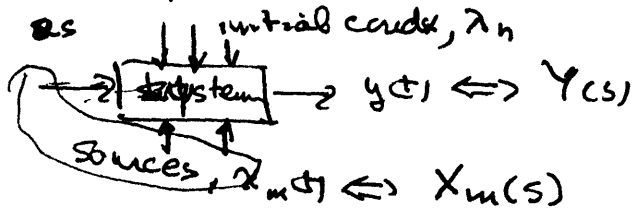 as
initial conds, λn
system
y(t) ⇔ Y(s)
sources, xm(t) ⇔ Xm(s)